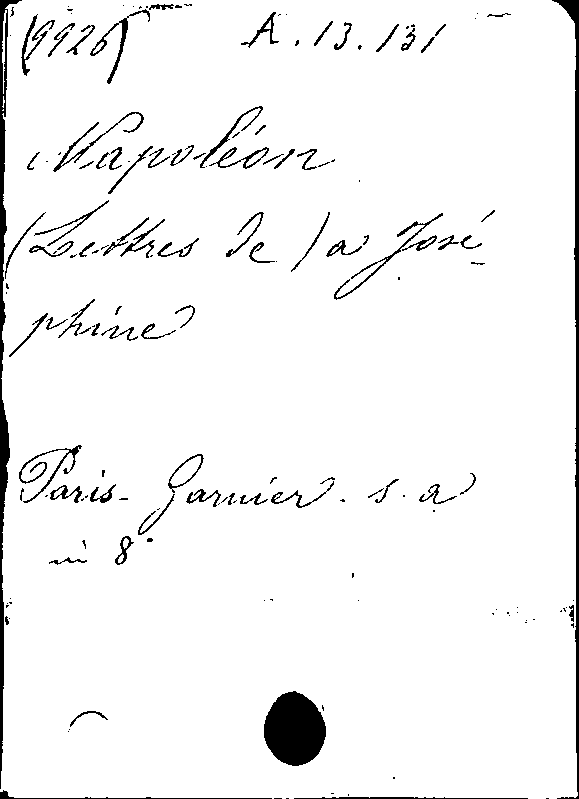 (9926) A.13.131
Napoléon
(Lettres de) a José-
phine
Paris- Garnier. s. a
in 8°